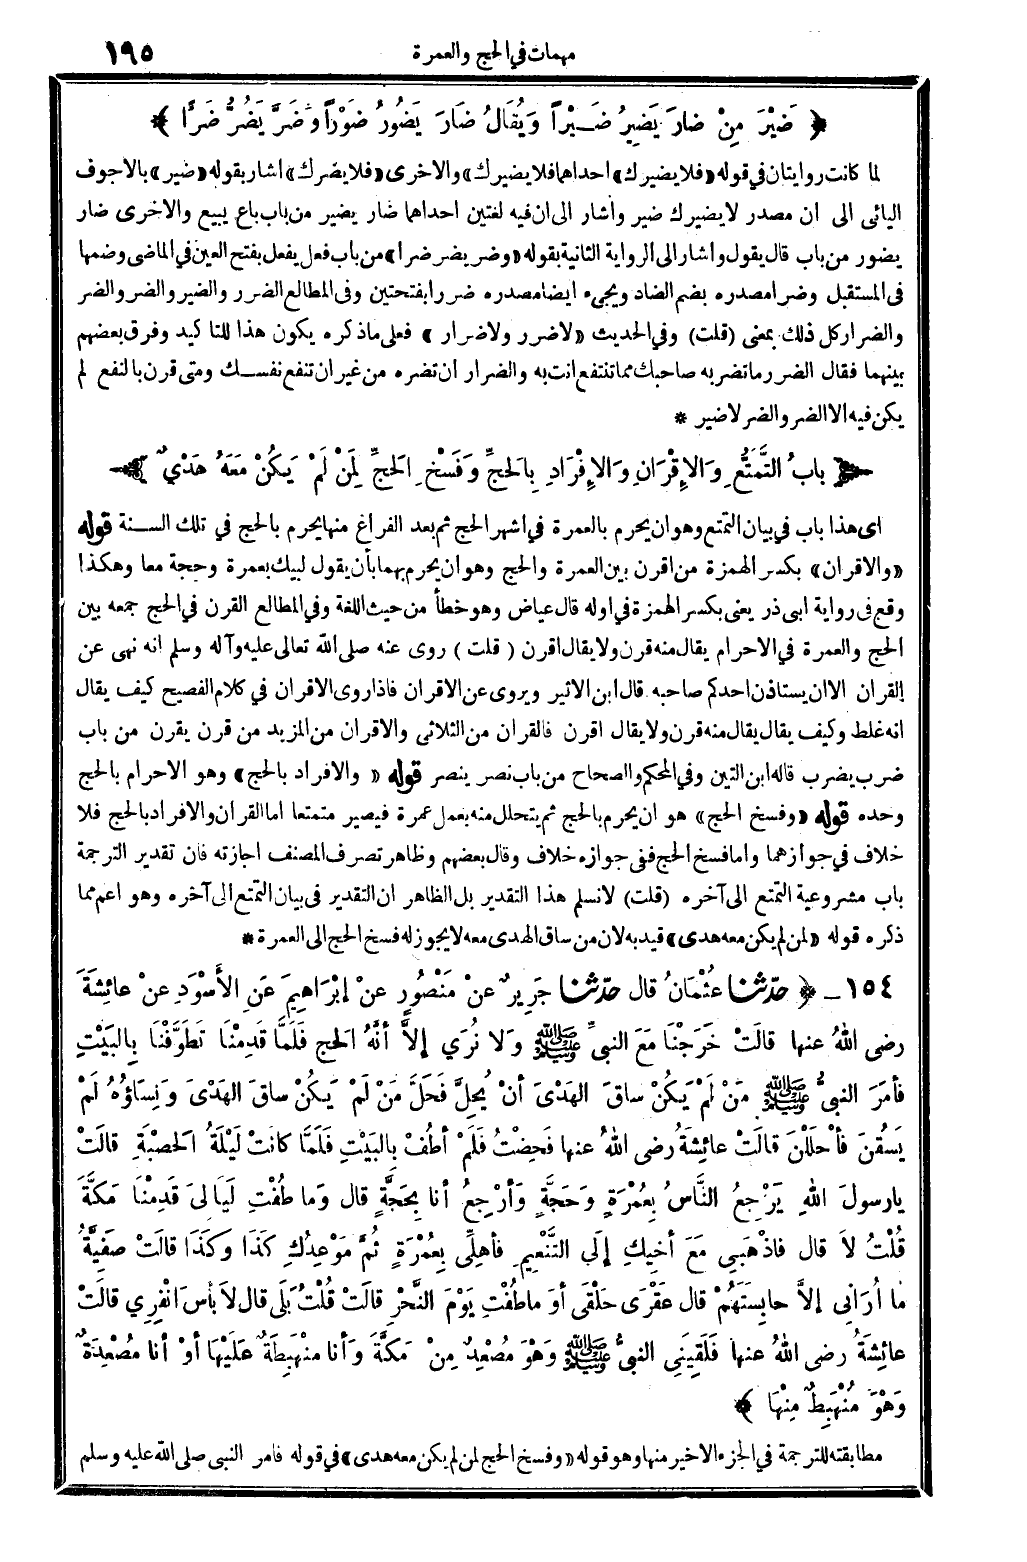 مهمات في الحج والعمرة
١٩٥
﴿ ضَيْرَ مِنْ ضارَ يَضِيرُ ضَـيْراً وَيُقَالُ ضَارَ يَضُورُ ضَوْراً وَضَرَّ يَضُرُّ ضَرًّا ﴾
لما كانت روايتان في قوله «فلا يضيرك» احداهما فلا يضيرك» والاخرى «فلا يضرك» اشار بقوله «ضير» بالاجوف
اليائى الى ان مصدر لا يضيرك ضير وأشار الى ان فيه لغتين احداهما ضار يضير من باب باع يبيع والاخرى ضار
يضور من باب قال يقول واشار الى الرواية الثانية بقوله «وضر يضر ضرا» من باب فعل يفعل بفتح العين في الماضى وضمها
فى المستقبل وضرا مصدره بضم الضاد ويجىء ايضا مصدره ضررا بفتحتين وفى المطالع الضرر والضير والضر والضر
والضرار كل ذلك بمعنى (قلت) وفي الحديث «لاضرر ولاضرار » فعلى ماذكره يكون هذا للتاكيد وفرق بعضهم
بينهما فقال الضرر ماتضر به صاحبك مما تنتفع انت به والضرار ان تضره من غير ان تنفع نفسـك ومتى قرن بالنفع لم
يكن فيه الا الضر والضر لاضير *
بابُ التَّمَتُّعِ وَالإِقْرَانِ وَالإِفْرَادِ بِالحَجِّ وَفَسْخِ الحَجِّ لِمَنْ لَمْ يَكُنْ مَعَهُ هَدْيٌ
اى هذا باب في بيان التمتع وهو ان يحرم بالعمرة في اشهر الحج ثم بعد الفراغ منها يحرم بالحج في تلك السـنة قوله
«والاقران» بكسر الهمزة من اقرن بين العمرة والحج وهو ان يحرم بهما بأن يقول لبيك بعمرة وحجة معا وهكذا
وقع فى رواية ابى ذر يعنى بكسر الهمزة في اوله قال عياض وهو خطأ من حيث اللغة وفي المطالع القرن في الحج جمعه بين
الحج والعمرة في الاحرام يقال منه قرن ولا يقال اقرن ( قلت ) روى عنه صلى الله تعالى عليه وآله وسلم انه نهى عن
القران الا ان يستاذن احدكم صاحبه قال ابن الاثير ويروى عن الاقران فاذا روى الاقران في كلام الفصيح كيف يقال
انه غلط وكيف يقال يقال منه قرن ولا يقال اقرن فالقران من الثلاثى والاقران من المزيد من قرن يقرن من باب
ضرب يضرب قاله ابن التين وفي المحكم والصحاح من باب نصر ينصر قوله « والافراد بالحج» وهو الاحرام بالحج
وحده قوله «وفسخ الحج» هو ان يحرم بالحج ثم يتحلل منه بعمل عمرة فيصير متمتعا اما القران والافراد بالحج فلا
خلاف في جوازهما واما فسخ الحج ففى جوازه خلاف وقال بعضهم وظاهر تصرف المصنف اجازته فان تقدير الترجمة
باب مشروعية التمتع الى آخره (قلت) لانسلم هذا التقدير بل الظاهر ان التقدير فى بيان التمتع الى آخره وهو اعم مما
ذكره قوله «لمن لم يكن معه هدى» قيد به لان من ساق الهدى معه لا يجوز له فسخ الحج الى العمرة *
١٥٤ ـ ﴿ حدّثنا عثْمَانُ قال حدّثنا جَرِيرٌ عنْ مَنْصُورٍ عنْ إبْرَاهِيمَ عَنِ الأَسْوَدِ عنْ عائِشَةَ
رضى اللهُ عنها قالَتْ خَرَجْنَا مَعَ النبىِّ ﷺ وَلا نُرَي إلاَّ أنَّهُ الحج فَلَمَّا قَدِمْنَا تَطَوَّفْنَا بِالبَيْتِ
فأمَرَ النبىُّ ﷺ مَنْ لَمْ يَكُنْ ساقَ الهَدْىَ أنْ يُحِلَّ فَحَلَّ مَنْ لَمْ يَكُنْ ساقَ الهَدْىَ وَنِساؤُهُ لَمْ
يَسُقنَ فأحْلَلْنَ قالَتْ عائِشَةُ رضى اللهُ عنها فَحِضْتُ فَلَمْ أطُفْ بِالبَيْتِ فَلَمَّا كانَتْ لَيْلَةُ الحَصْبَةِ قالَتْ
يارسولَ اللهِ يَرْجِعُ النَّاسُ بِعُمْرَةٍ وَحَجَّةٍ وَأرْجِعُ أنا بِحَجَّةٍ قال وَما طُفْتِ لَيَالِىَ قَدِمْنَا مَكَّةَ
قُلْتُ لاَ قال فاذْهَبِي مَعَ أخِيكِ إلَى التَّنْعِيمِ فأهِلِّى بِعُمْرَةٍ ثُمَّ مَوْعِدُكِ كَذَا وَكَذَا قالَتْ صَفِيَّةُ
ما أُرَانِى إلاَّ حابِسَتَهُمْ قال عَقْرَى حَلْقَى أوَ ماطُفْتِ يَوْمَ النَّحْرِ قالَتْ قُلْتُ بَلَى قال لاَ بأسَ انْفِرِي قالَتْ
عائِشَةُ رضى اللهُ عنها فَلَقِيَنِى النبىُّ ﷺ وَهْوَ مُصْعِدٌ مِنْ مَكَّةَ وَأنا مُنْهَبِطَةٌ عَلَيْهَا أوْ أنا مُصْعِدَةٌ
وَهْوَ مُنْهَبِطٌ مِنْهَا ﴾
مطابقته للترجمة في الجزء الاخير منها وهو قوله «وفسخ الحج لمن لم يكن معه هدى» في قوله فامر النبى صلى الله عليه وسلم